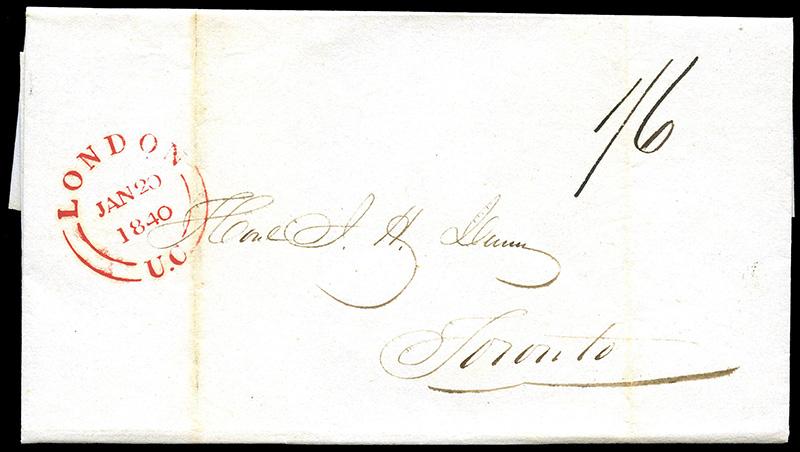 1/6
LONDON
JAN 20
1840
U.C.
Honl J. H. Dunn
Toronto